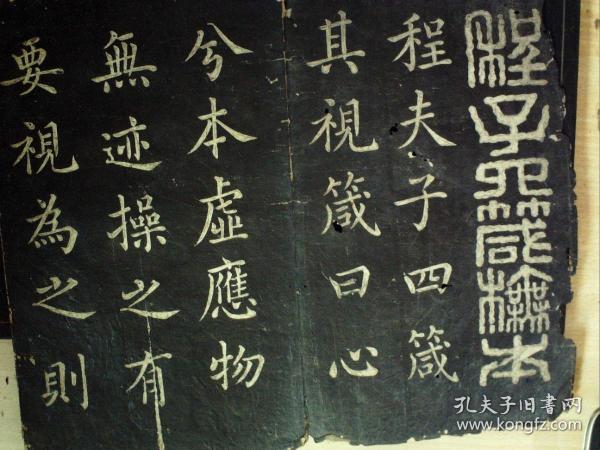 程子四箴橅本
程夫子四箴
其視箴曰心
兮本虛應物
無迹操之有
要視為之則
孔夫子旧書网
www.kongfz.com